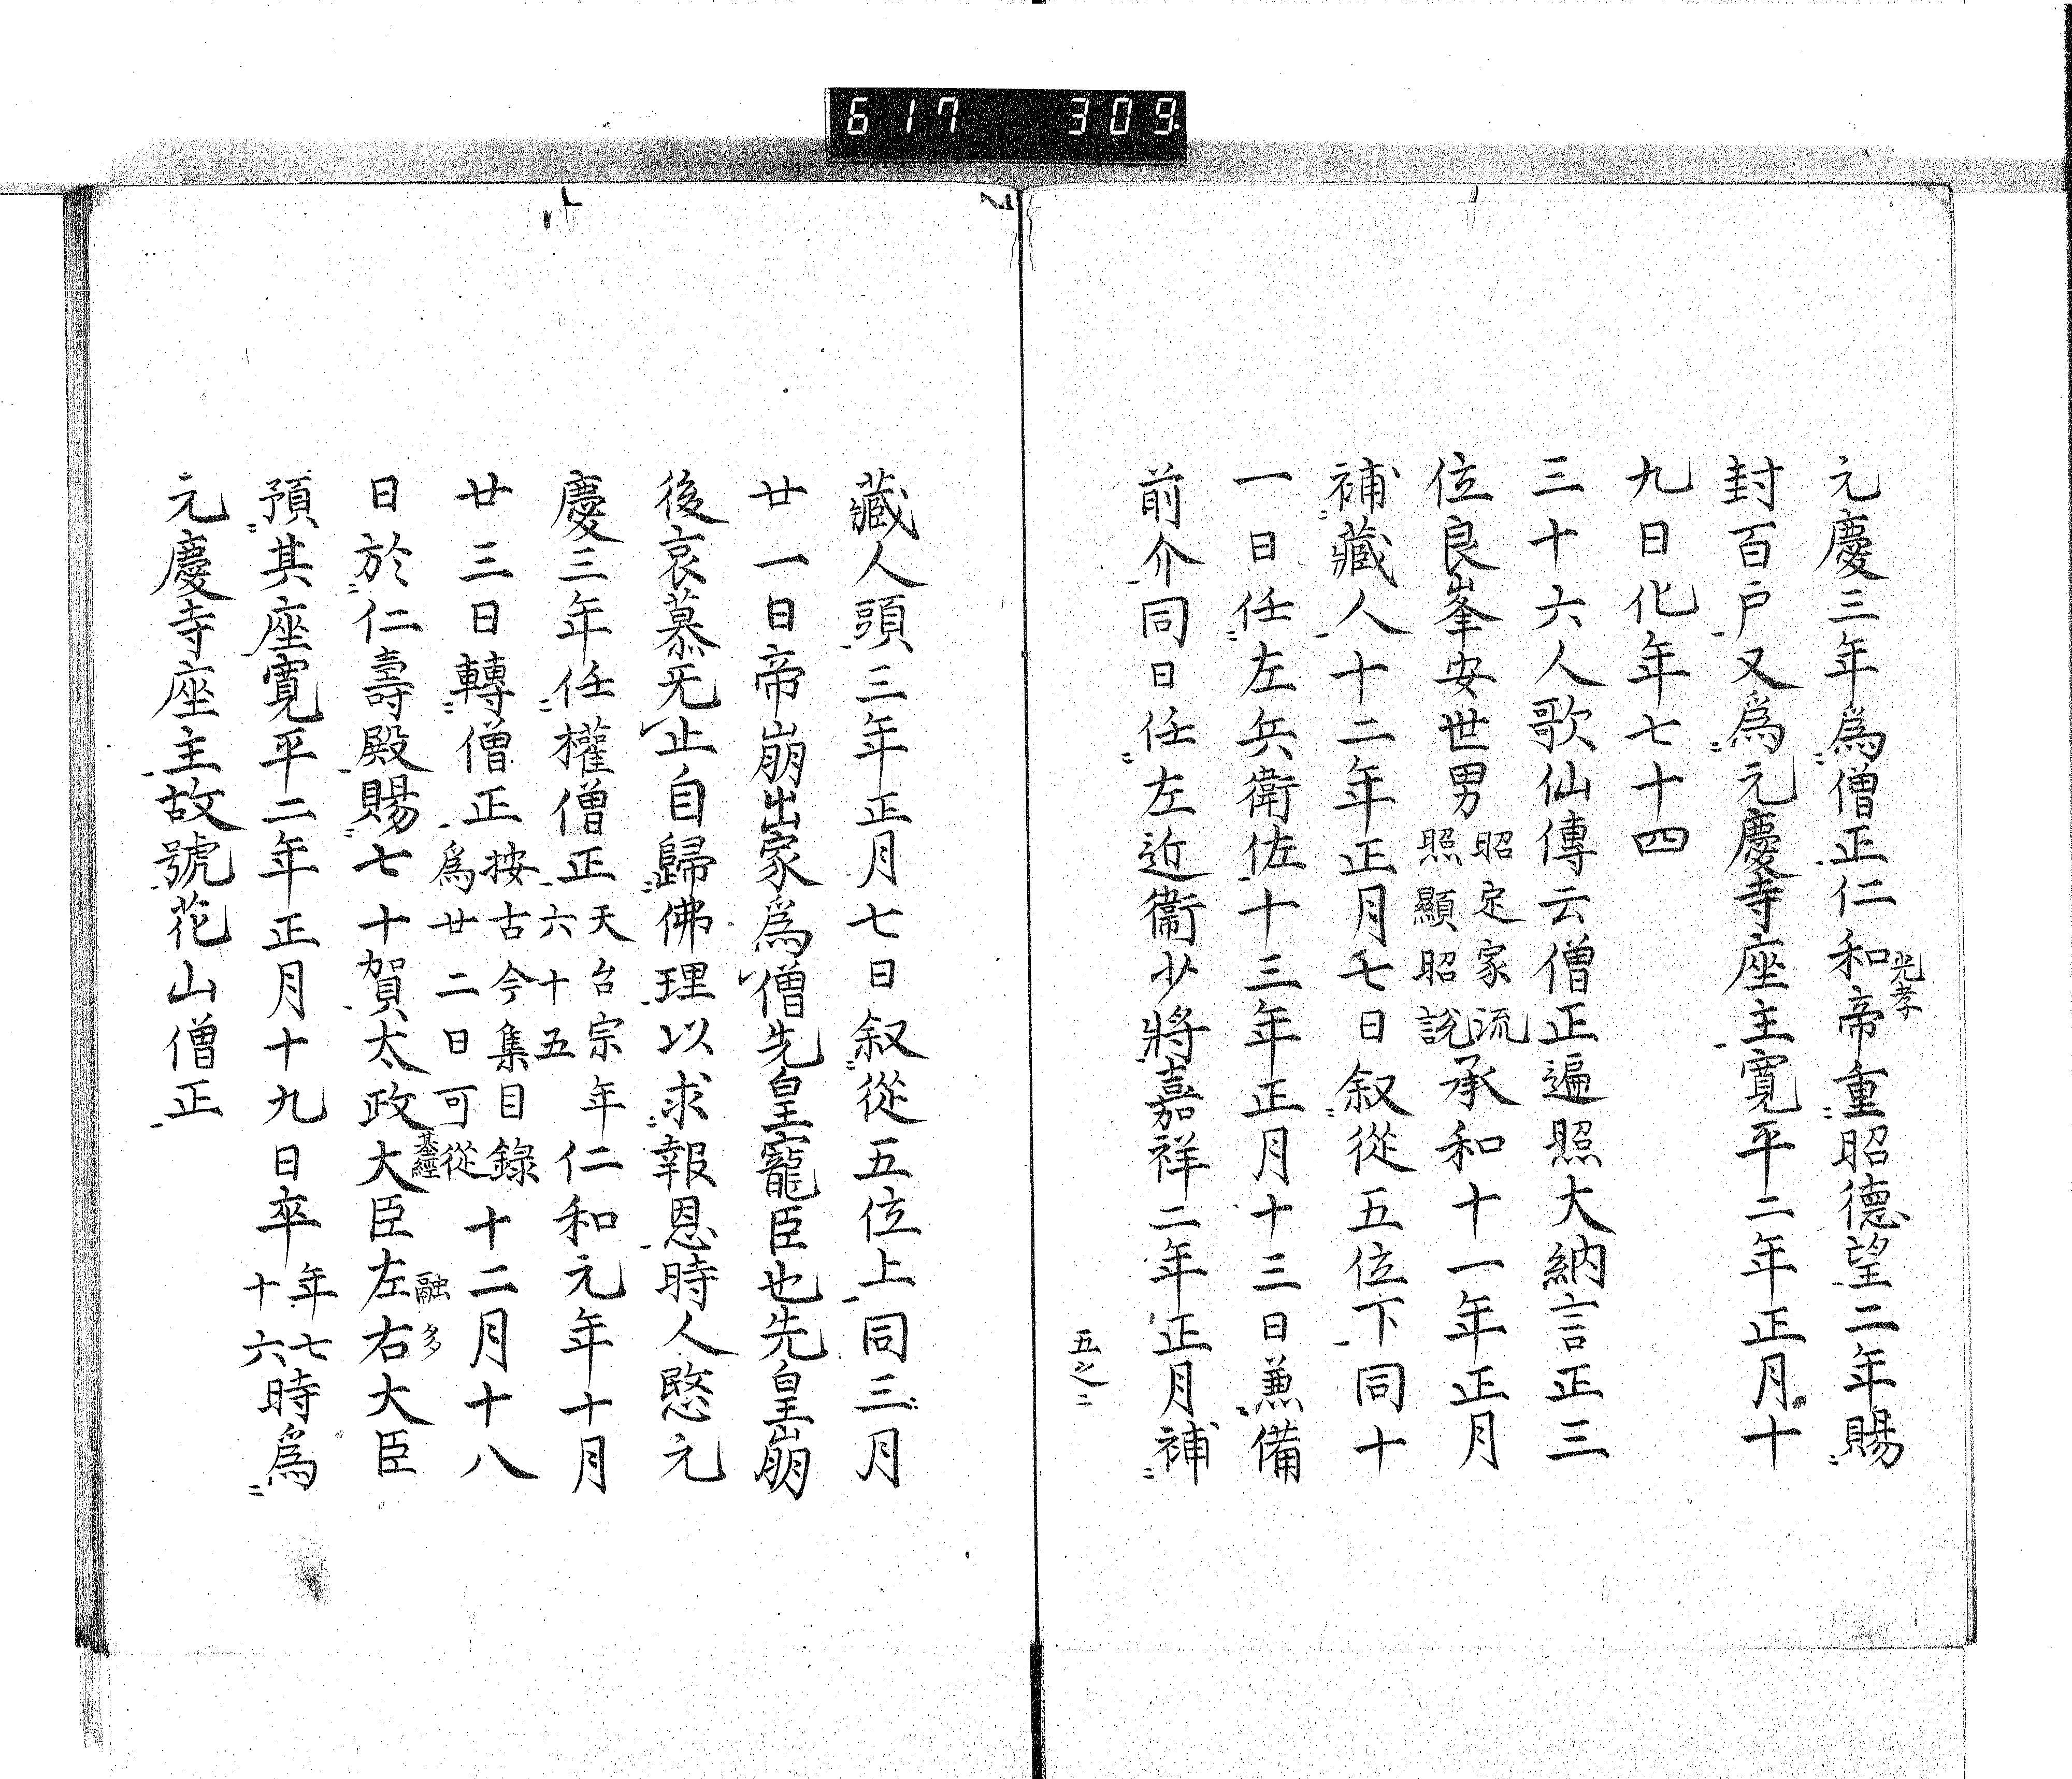 617 309
元慶三年爲僧正仁和帝重昭德望二年賜
光孝
封百戶又爲元慶寺座主寛平二年正月十
九日化年七十四
三十六人歌仙傳云僧正遍照大納言正三
位良峯安世男昭定家流照顯昭説承和十一年正月
補藏人十二年正月七日叙從五位下同十
一日任左兵衛佐十三年正月十三日兼備
前介同日任左近衞少將嘉祥二年正月補
五之二
藏人頭三年正月七日叙從五位上同三月
廿一日帝崩出家爲僧先皇寵臣也先皇崩
後哀慕无止自歸佛理以求報恩時人愍元
慶三年任權僧正天台宗年六十五仁和元年十月
廿三日轉僧正按古今集目録爲廿二日可從十二月十八
日於仁壽殿賜七十賀太政大臣左右大臣
基經 融 多
預其座寛平二年正月十九日卒年七十六時爲
元慶寺座主故號花山僧正